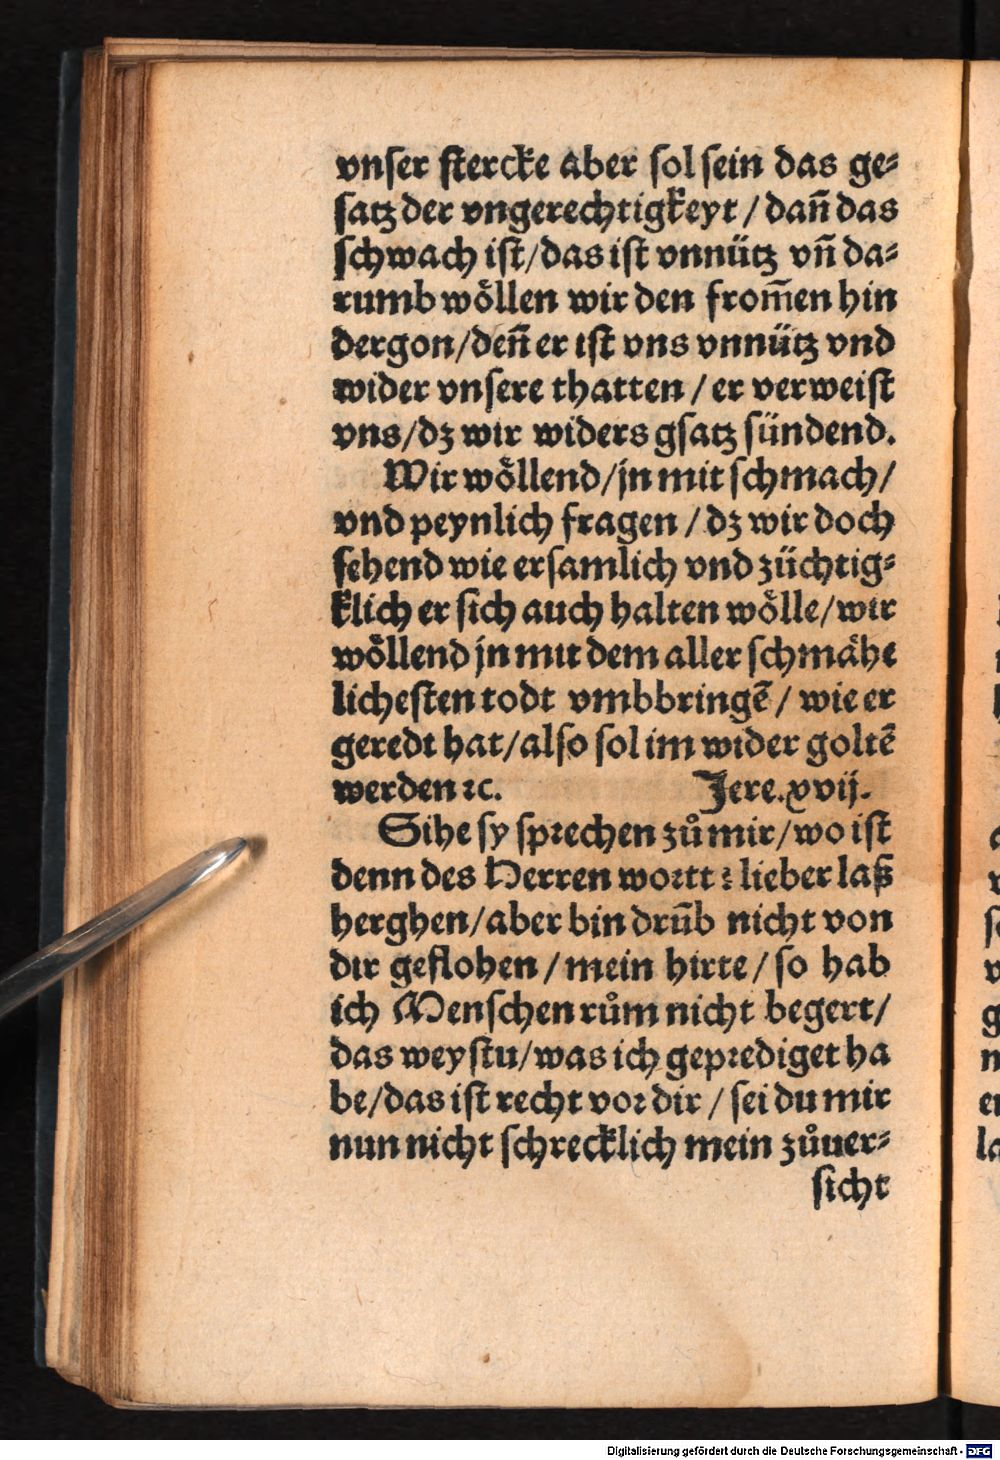 vnser stercke aber sol sein das ge⸗
satz der vngerechtigkeyt / dañ das
schwach ist/das ist vnnütz vñ da⸗
rumb wöllen wir den from̃en hin
dergon/deñ er ist vns vnnütz vnd
wider vnsere thatten / er verweist
vns/dz wir widers gsatz sündend.
Wir wöllend/jn mit schmach/
vnd peynlich fragen / dz wir doch
sehend wie ersamlich vnd züchtig⸗
klich er sich auch halten wölle/wir
wöllend jn mit dem aller schmähe
lichesten todt vmbbringẽ / wie er
geredt hat/also sol im wider goltẽ
werden ꝛc. Jere.xvij.
Sihe sy sprechen zů mir/wo ist
denn des Herren wortt? lieber laß
herghen/aber bin drũb nicht von
dir geflohen / mein hirte / so hab
ich Menschen rům nicht begert/
das weystu/was ich geprediget ha
be/das ist recht vor dir / sei du mir
nun nicht schrecklich mein zůuer⸗
sicht
Digitalisierung gefördert durch die Deutsche Forschungsgemeinschaft - DFG